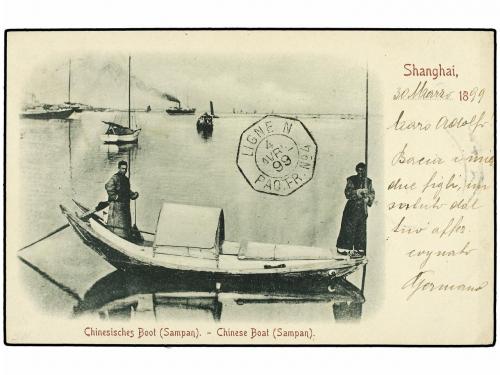 Shanghai,
30 Marzo 1899
Caro Adolfo
Bacia i miei
due figli, un
saluto dal
tuo aff.
cognato
Germano
LIGNE N
4
AVR
99
PAQ. FR. Nº4
Chinesisches Boot (Sampan). – Chinese Boat (Sampan).